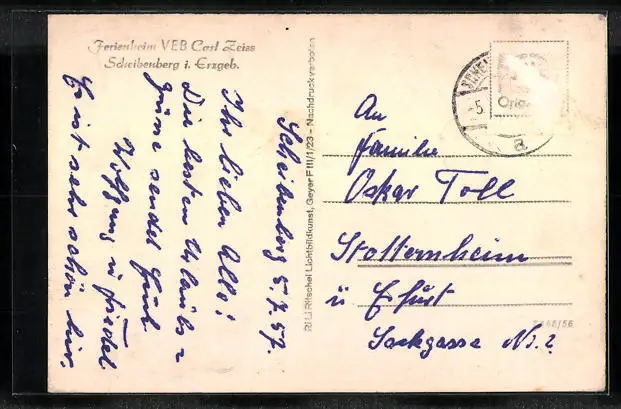 Ferienheim VEB Carl Zeiss
Scheibenberg i. Erzgeb.
Scheibenberg 5.7.57.
Ihr lieben Alle!
Die besten Urlaubs-
grüsse sendet Euch
Wolfgang u. Friedel
Es ist sehr schön hier.
Ri Li Ritschel Lichtbildkunst, Geyer F III/1/23 - Nachdruck verboten
5.
a
Orig
An
Familie
Oskar Toll
Stotternheim
ü Erfurt
Sackgasse Nr. 2